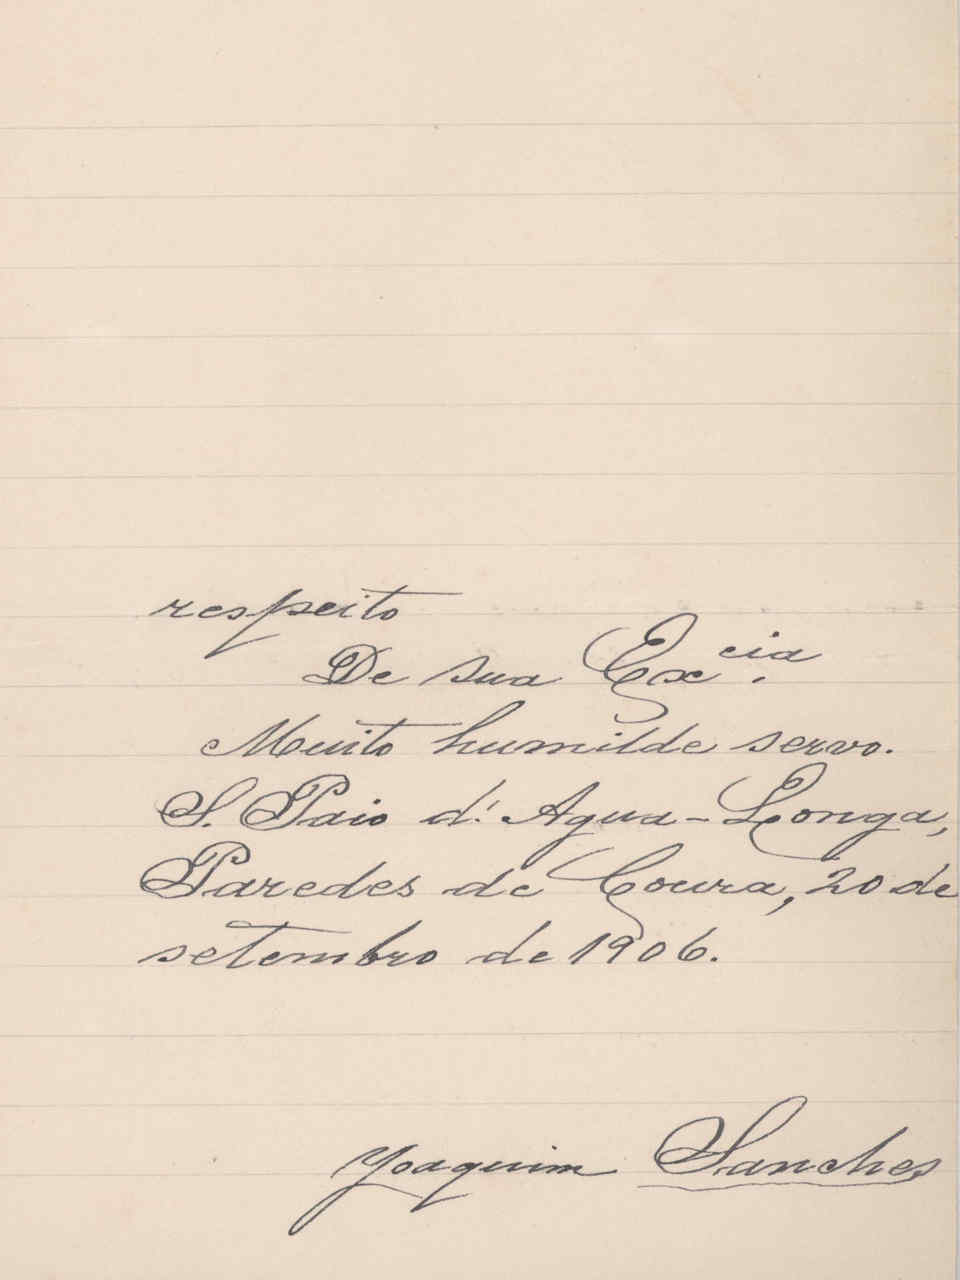 respeito
De sua Ex.cia
Muito humilde servo.
S. Paio d'Agua-Longa,
Paredes de Coura, 20 de
setembro de 1906.
Joaquim Sanches